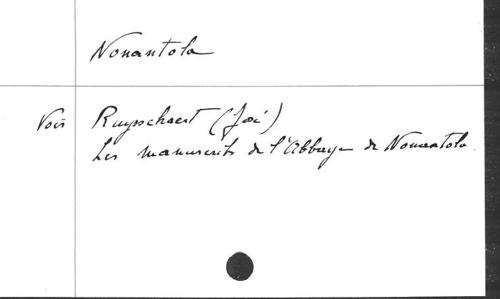 Nonantola
Voir Ruysschaert (José)
Les manuscrits de l'Abbaye de Nonantola.